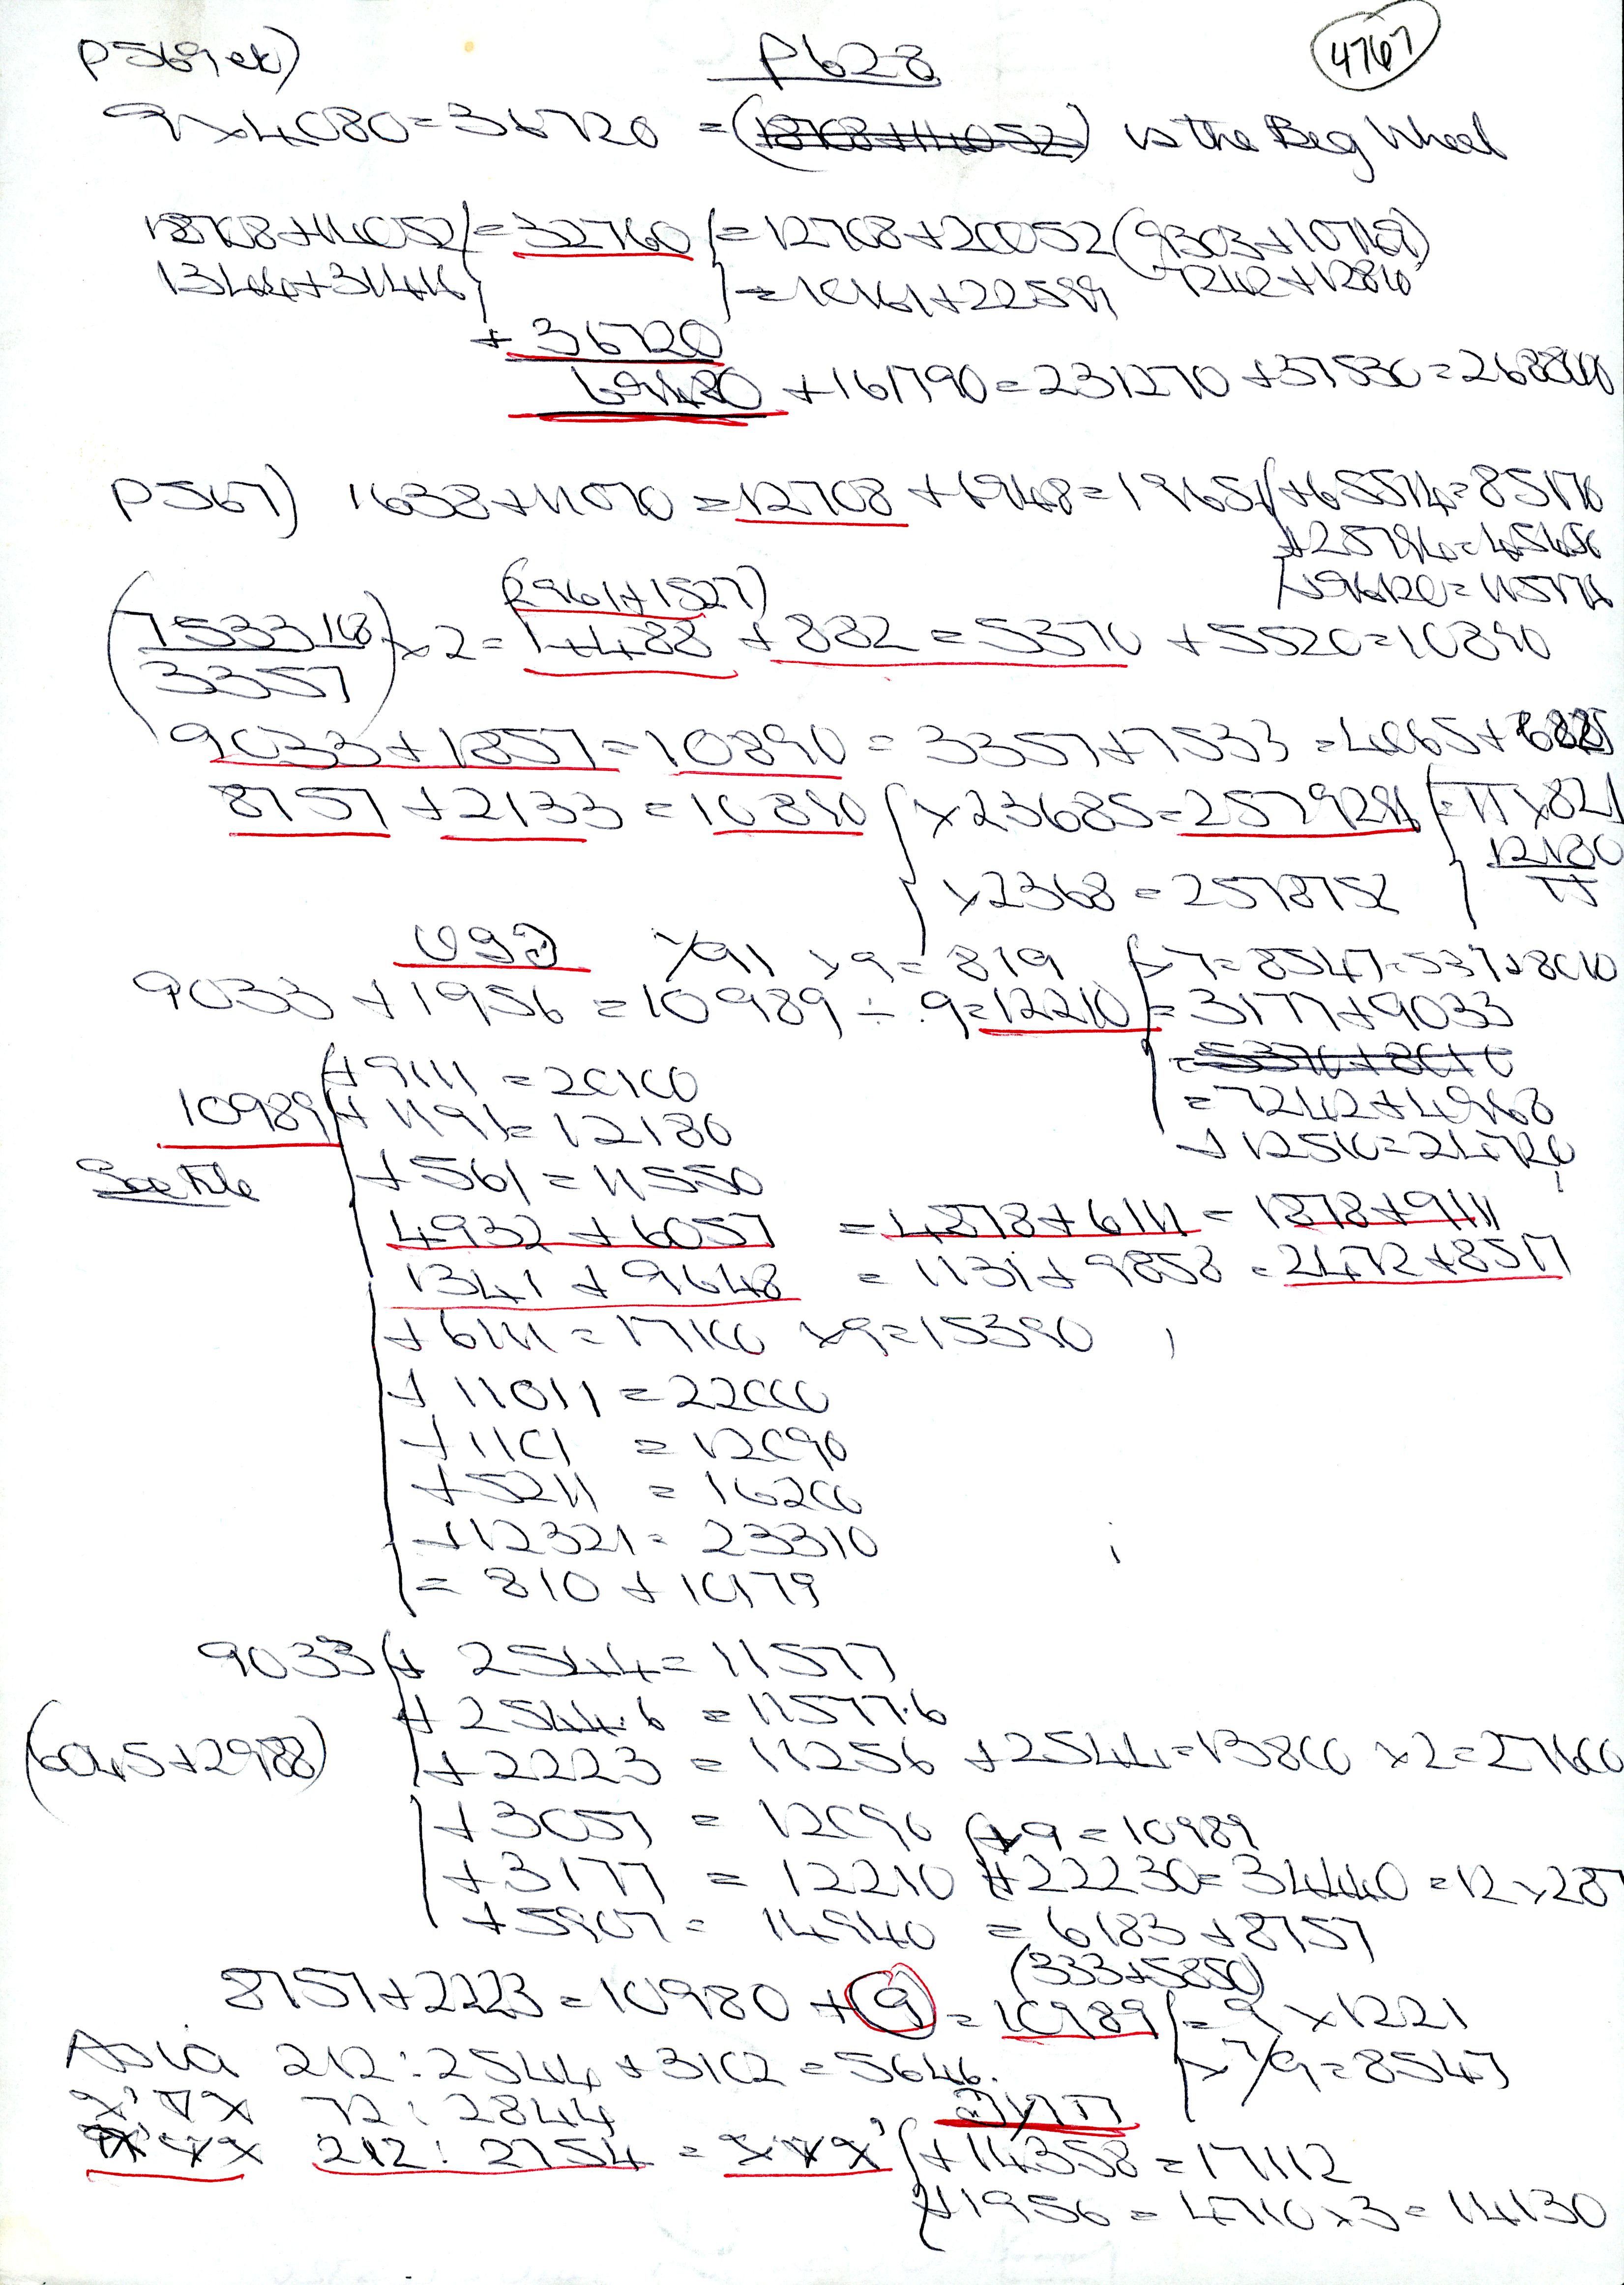 P569 ex) P628 4767
9x4080=36720 =(18708+14052) is the Big Wheel
18708+14052 =32760 =12708+20052(9303+10749)
1344+31416 =10161+22599 7242+12810
+36720
69480 +161790=231270 +37530=268800
P567) 1638+11070 =12708 +6948=19656 +65514=85170
+25794=45450
(2961+1527)
(7533 / 3357) x2= 4488 +882=5370 +5520=10890
9033+1857=10890=3357+7533=4065+6825
8757+2133=10890 x23685=
x2368=2578752
x91 x9=819 x7=8547=537+8010
9033+1956=10989÷.9=12210 =3177+9033
+9111=20100 =5370+8010
10989 +1191=12180 =7242+4968
+561=11550 +12510=24720
4932+6057 =4878+6111=1878+9111
1341+9648 =1131+9858=2472+8517
+6111=17100 x9=15390
+11011=22000
+1101 =12090
+5211 =16200
+12321=23310
=810+10179
9033 +2544=11577
+2544.6=11577.6
(6045+2988) +2223=11256+2544=13800x2=27600
+3057=12090
+3177=12210 +22230=34440=12x287
+5907=14940 =6183+8757
(333+5850)
8757+2223=10980+9=10989 =9x1221
Asia 212:2544+3102=5646. x7/9=8547
72:2844
212:2754= +14358=17112
+1956=4710x3=14130